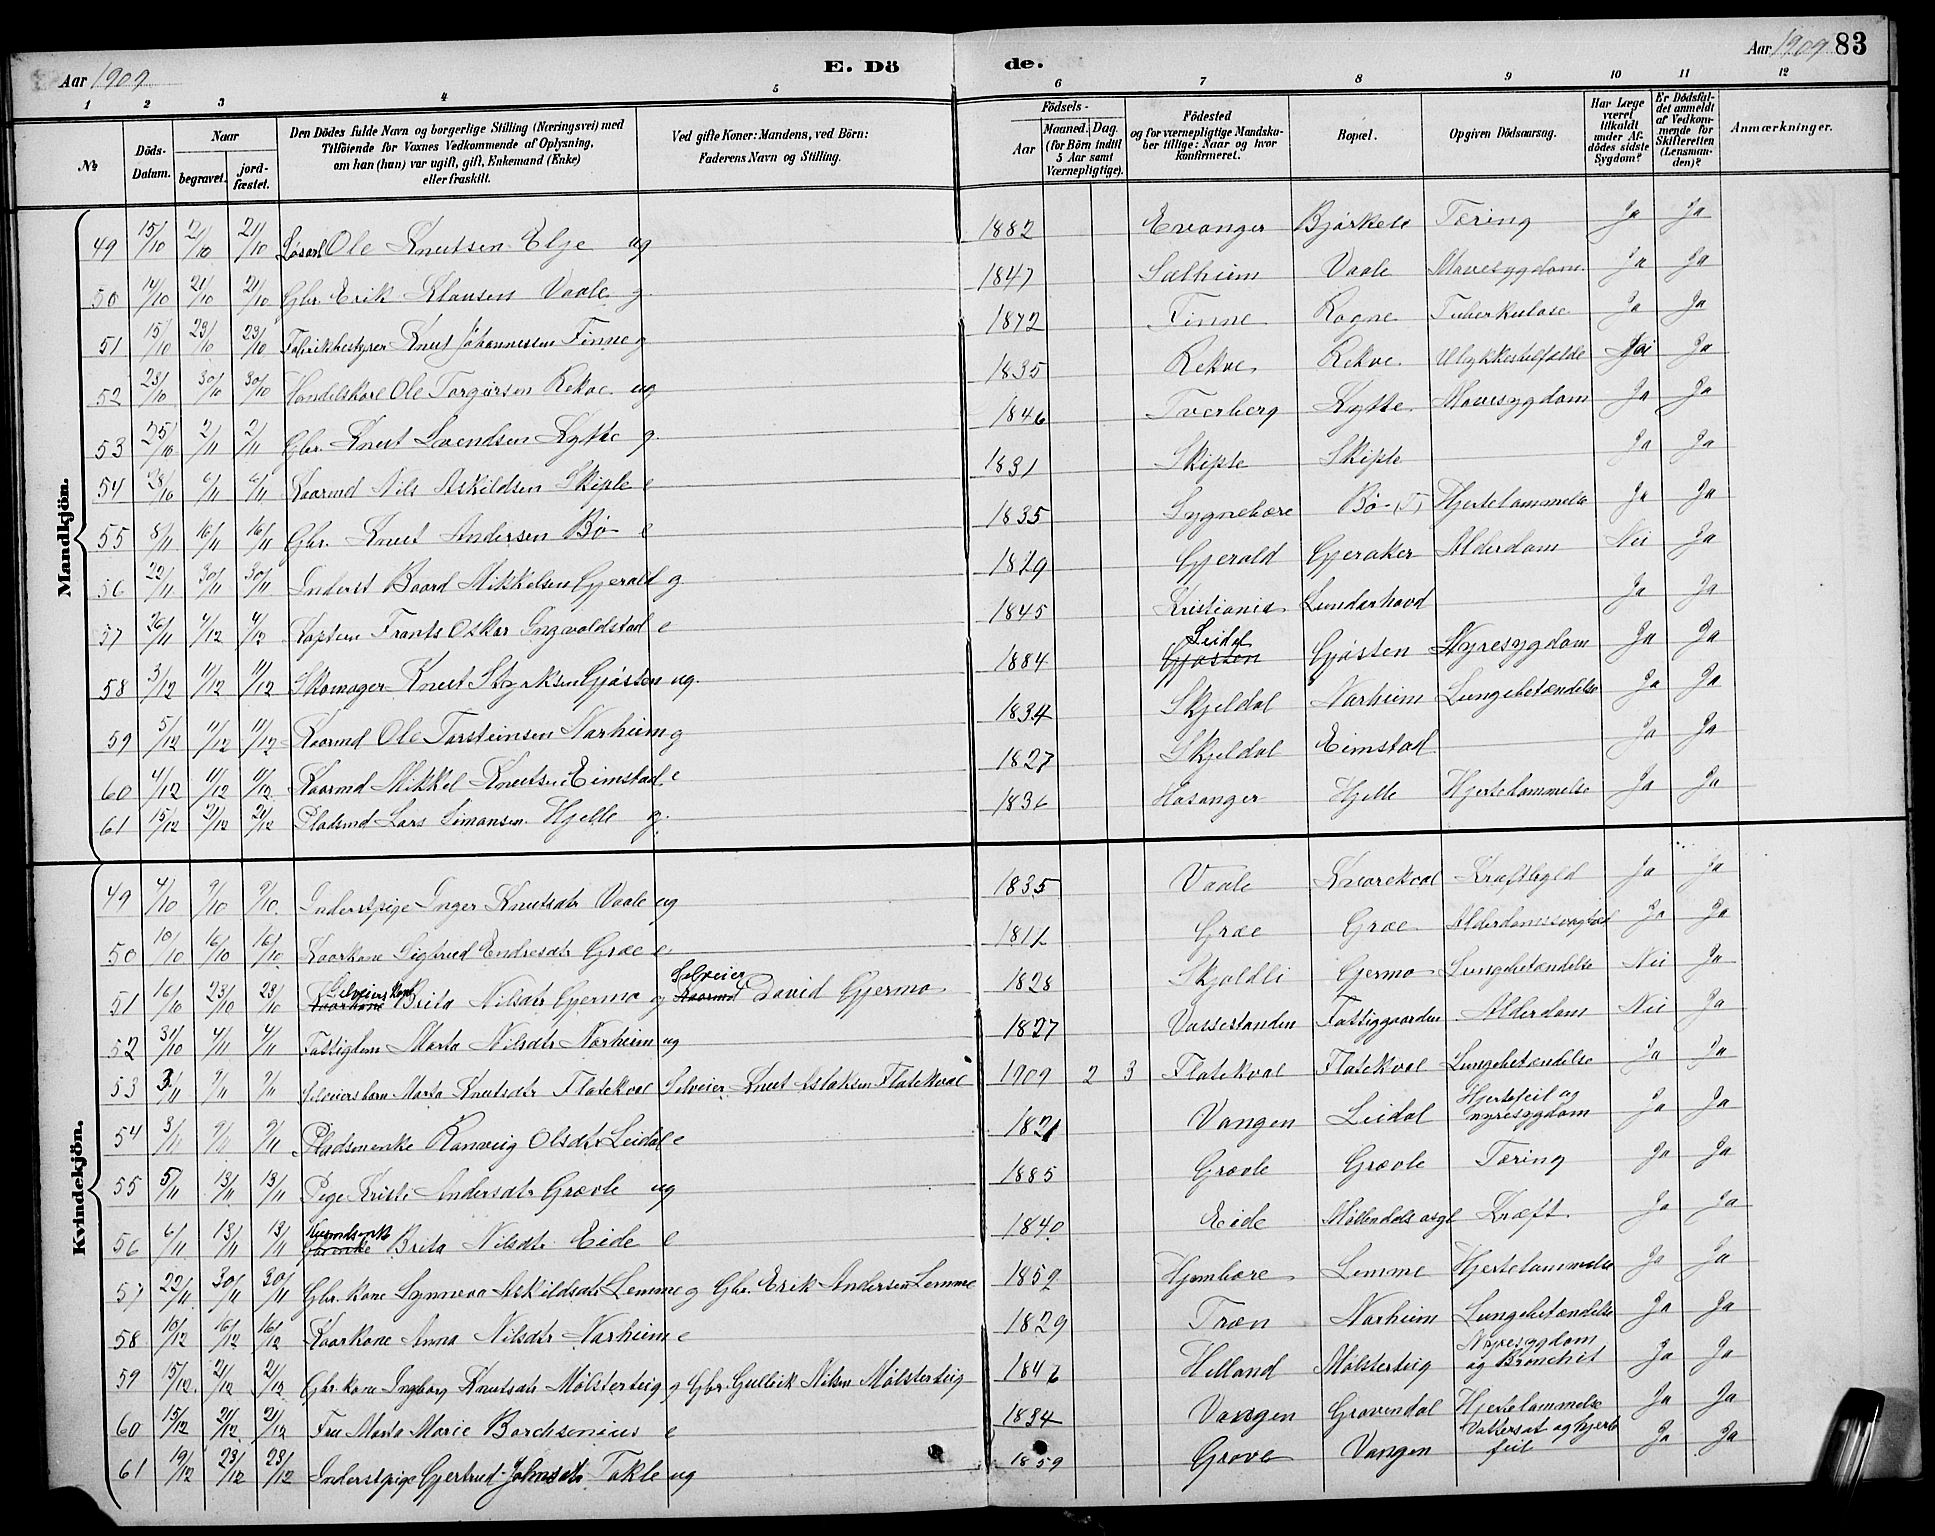 Aar 1909
E. Döde.
Aar 1909 83
1 2 3 4 5 6 7 8 9 10 11 12
№
Döds-Datum.
Naar
begravet.
jord-fæstet.
Den Dödes fulde Navn og borgerlige Stilling (Næringsvei) med
Tilföiende for Voxnes Vedkommende af Oplysning,
om han (hun) var ugift, gift, Enkemand (Enke)
eller fraskilt.
Ved gifte Koner: Mandens, ved Börn:
Faderens Navn og Stilling.
Födsels-
Aar
Maaned. Dag.
(for Börn indtil
5 Aar samt
Værnepligtige).
Födested
og for værnepligtige Mandska-
ber tillige: Naar og hvor
konfirmeret.
Bopæl.
Opgiven Dödsaarsag.
Har Læge
været
tilkaldt
under Af-
dödes sidste
Sygdom?
Er Dödsfal-
det anmeldt
af Vedkom-
mende for
Skifteretten
(Lensman-
den)?
Anmærkninger.
Mandkjön.
49 15/10 21/10 21/10 Løsarb Ole Knutsen Elje ug 1882 Evanger Bjørkeli Tæring Ja Ja
50 14/10 21/10 21/10 Gbr. Erik Klausen Vaale g. 1847 Sælheim Vaale Mavesygdom Ja Ja
51 15/10 23/10 23/10 Fabrikbestyrer Knut Johannessen Finne g 1872 Finne Rogne Tuberkulose Ja Ja
52 23/10 30/10 30/10 Handelskare Ole Torgersen Rekve ug 1835 Rekve Rekve Ulykkestilfælde Ja
53 25/10 2/11 2/11 Gbr. Knut Svendsen Kytte g. 1846 Tverberg Kytte Mavesygdom Ja Ja
54 28/10 6/11 6/11 Kaarmd Nils Askildsen Skiple e 1831 Skiple Skiple Ja Ja
55 8/11 16/11 16/11 Gbr. Knut Andersen Bø e 1835 Lygnebære Bø (T) Hjertelammelse Ja Ja
56 22/11 30/11 30/11 Inderst Baard Mikkelsen Gjerald g 1829 Gjerald Gjeraker Alderdom Nei Ja
57 26/11 4/12 4/12 Kaptein Frants Oskar Ingvaldstad e 1845 Kristiania Lundarhavd Ja Ja
58 3/12 11/12 11/12 Skomager Knut Styrksen Gjøsten ug. 1884 Leidal Gjøsten Gjøsten Nyresygdom Ja Ja
59 5/12 11/12 11/12 Kaarmd Ole Torsteinsen Narheim g 1834 Skjeldal Narheim Lungebetændelse Ja Ja
60 4/12 11/12 11/12 Kaarmd Mikkel Knutsen Eimstad e 1827 Skjeldal Eimstad Ja Ja
61 15/12 21/12 21/12 Pladsmd Lars Simonsen Hjelle g. 1836 Hosanger Hjelle Hjertelammelse Ja Ja
Kvindekjön.
49 4/10 9/10 9/10 Inderstpige Inger Knutsdtr Vaale ug 1835 Vaale Kvarekval Kræftbyld Ja Ja
50 10/10 16/10 16/10 Kaarkone Sigtrud Endresdtr Græe e 1811 Græe Græe Alderdomssvaghed Ja Ja
51 16/10 23/10 23/10 Selveiers Kone Kaarkone Brita Nilsdtr Gjerme g Selveier Kaarmd David Gjerme 1828 Skjoldli Gjerme Lungebetændelse Nei Ja
52 31/10 4/11 4/11 Fattiglem Marta Nilsdtr Narheim ug 1827 Vassestanden Fattiggaarden Alderdom Nei Ja
53 3/11 9/11 9/11 Selveiersbarn Marta Knutsdtr Flatekval Selveier Knut Aslaksen Flatekval 1909 2 3 Flatekval Flatekval Lungebetændelse Ja Ja
54 3/11 9/11 9/11 Pladsmenke Ranveig Olsdtr Leidal e 1821 Vangen Leidal Hjertefeil og nyresygdom Ja Ja
55 5/11 13/11 13/11 Pige Kristi Andersdtr Grævle ug 1885 Grævle Grævle Tæring Ja Ja
56 6/11 13/11 13/11 Brita Nilsdtr Eide e 1840 Eide Møllendals asyl Kræft. Ja Ja
57 22/11 30/11 30/11 Gbr. kone Synneva Askildsdtr Lemme g Gbr. Erik Andersen Lemme 1859 Hjembære Lemme Hjertelammelse Ja Ja
58 10/12 16/12 16/12 Kaarkone Anna Nilsdtr Narheim e 1829 Træn Narheim Lungebetændelse Ja Ja
59 15/12 21/12 21/12 Gbr. kone Ingborg Knutsdtr Mølsterteig g Gbr. Gulleik Nilsen Mølsterteig 1847 Helland Mølsterteig Nyresygdom og Bronchit Ja Ja
60 15/12 21/12 21/12 Fru Marta Marie Borchsenius e 1834 Vangen Gravendal Hjertelammelse Ja Ja
61 19/12 23/12 23/12 Inderstpige Gjertrud Johnsdtr Takle ug 1859 Grove Vangen Vattersot og hjerte feil Ja Ja